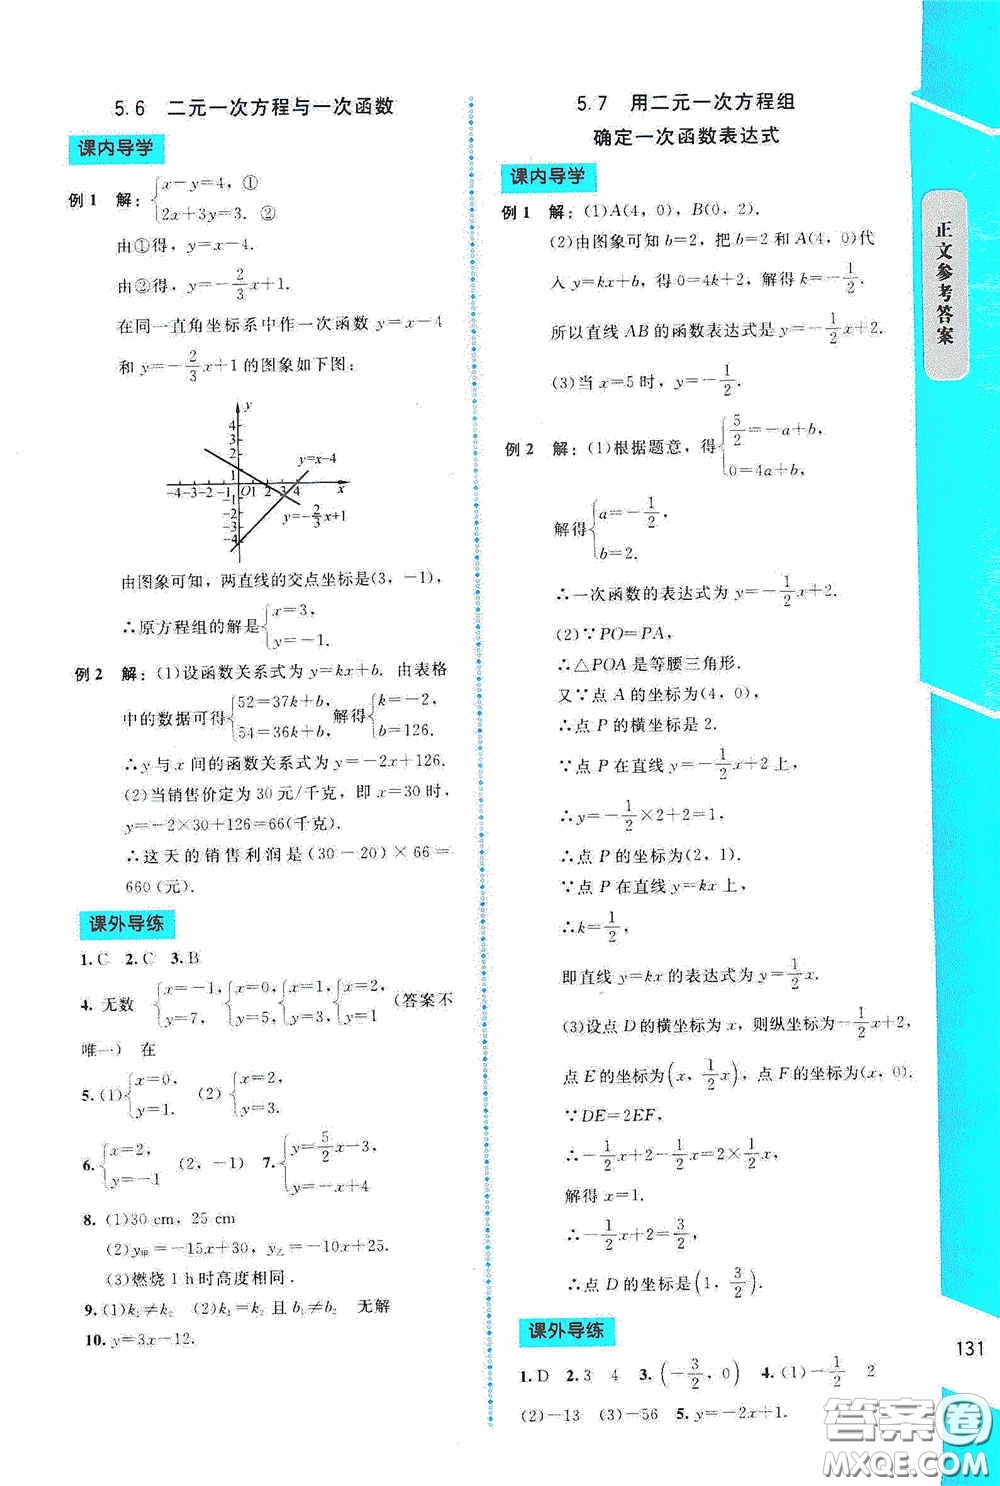 5.6 二元一次方程与一次函数
课内导学
例1 解：{x－y=4，①
2x+3y=3. ②
由①得，y=x－4.
由②得，y=－2/3x+1.
在同一直角坐标系中作一次函数 y=x－4
和 y=－2/3x+1 的图象如下图：
y
4
3
2
1
-4 -3 -2 -1 O 1 2 3 4 x
-1
-2
-3
-4
y=x-4
y=-2/3x+1
由图象可知，两直线的交点坐标是(3，－1)，
∴原方程组的解是{x=3，
y=－1.
例2 解：(1)设函数关系式为 y=kx+b. 由表格
中的数据可得{52=37k+b 54=36k+b，解得{k=－2，b=126.
∴y与x间的函数关系式为 y=－2x+126.
(2)当销售价定为30元/千克，即x=30时，
y=－2×30+126=66(千克).
∴这天的销售利润是(30－20)×66=
660(元).
课外导练
1.C 2.C 3.B
4. 无数 {x=－1，y=7， {x=0，y=5， {x=1，y=3， {x=2，y=1 (答案不
唯一) 在
5.(1){x=0，y=1. (2){x=2，y=3.
6.{x=2，y=－1 (2，－1) 7.{y=5/2x－3，y=－x+4
8.(1)30 cm，25 cm
(2)y甲=－15x+30，y乙=－10x+25.
(3)燃烧1 h时高度相同.
9.(1)k₁≠k₂ (2)k₁=k₂且b₁≠b₂ 无解
10.y=3x－12.
5.7 用二元一次方程组
确定一次函数表达式
课内导学
例1 解：(1)A(4，0)，B(0，2).
(2)由图象可知 b=2，把 b=2 和 A(4，0)代
入 y=kx+b，得 0=4k+2，解得 k=－1/2.
所以直线 AB 的函数表达式是 y=－1/2x+2.
(3)当 x=5 时，y=－1/2.
例2 解：(1)根据题意，得{5/2=－a+b，
0=4a+b，
解得{a=－1/2，
b=2.
∴一次函数的表达式为 y=－1/2x+2.
(2)∵PO=PA，
∴△POA 是等腰三角形.
又∵点 A 的坐标为(4，0)，
∴点 P 的横坐标是 2.
∵点 P 在直线 y=－1/2x+2 上，
∴y=－1/2×2+2=1，
∴点 P 的坐标为(2，1).
∵点 P 在直线 y=kx 上，
∴k=1/2，
即直线 y=kx 的表达式为 y=1/2x.
(3)设点 D 的横坐标为 x，则纵坐标为－1/2x+2，
点 E 的坐标为(x，1/2x)，点 F 的坐标为(x，0).
∵DE=2EF，
∴－1/2x+2－1/2x=2×1/2x，
解得 x=1.
∴－1/2x+2=3/2，
∴点 D 的坐标是(1，3/2).
课外导练
1.D 2.3 4 3.(－3/2，0) 4.(1)－1/2 2
(2)－13 (3)－56 5.y=－2x+1.
正文参考答案
131
答案卷
MXQE.COM